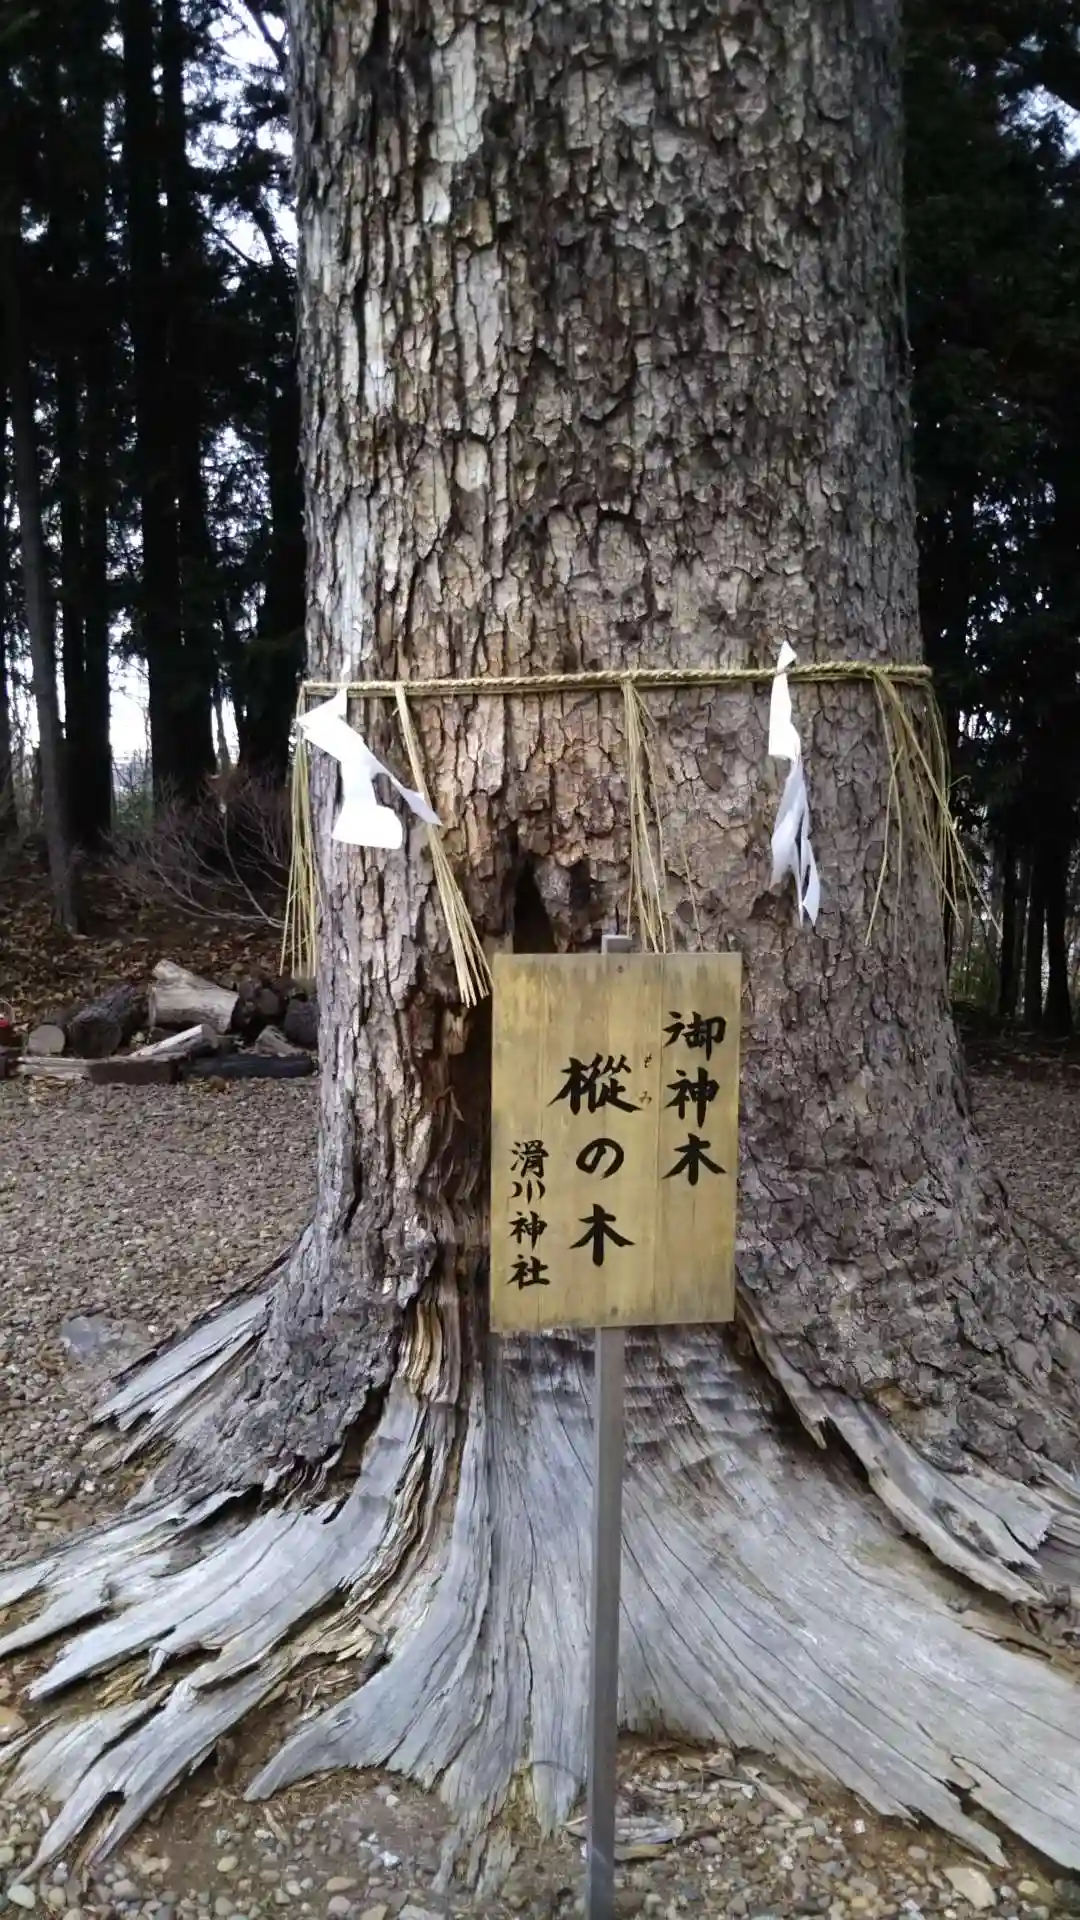 御神木
樅の木
もみ
滑川神社